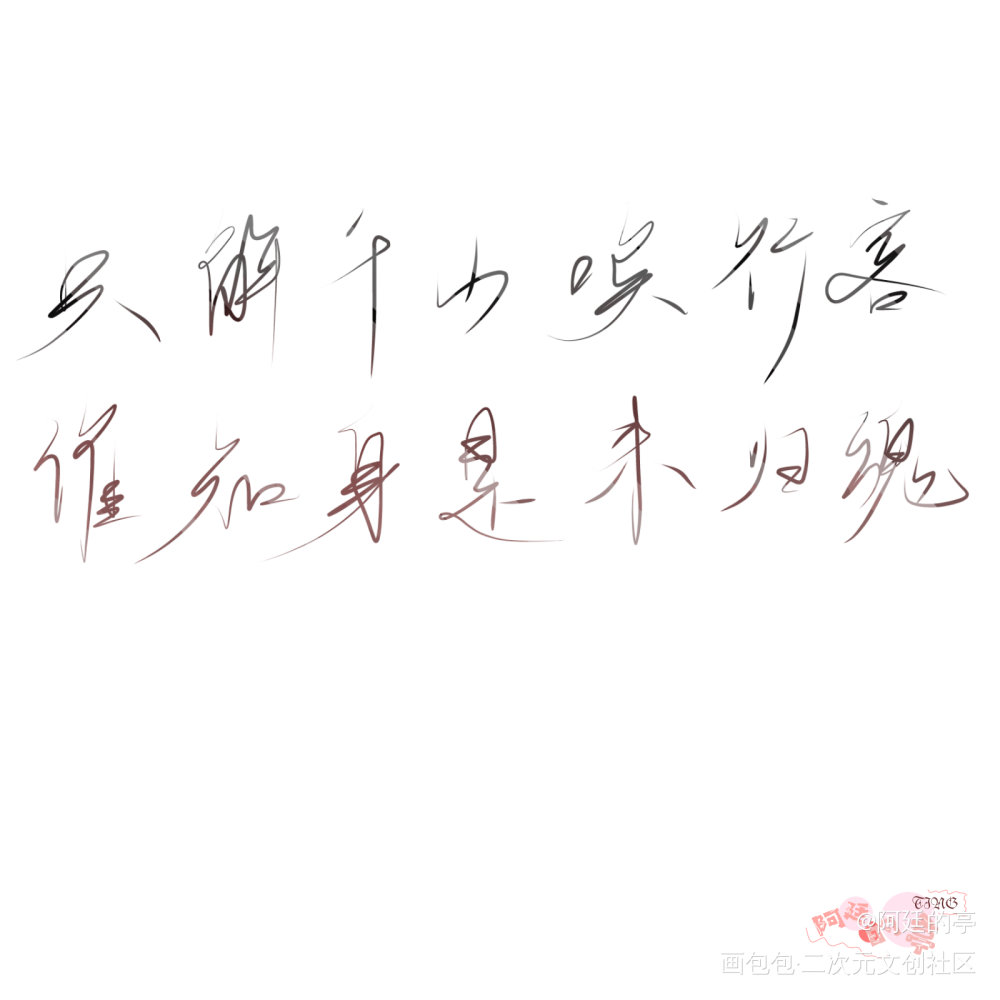 只解千山唤行客
谁知身是未归魂
TING
阿廷的亭
@阿廷的亭
画包包·二次元文创社区